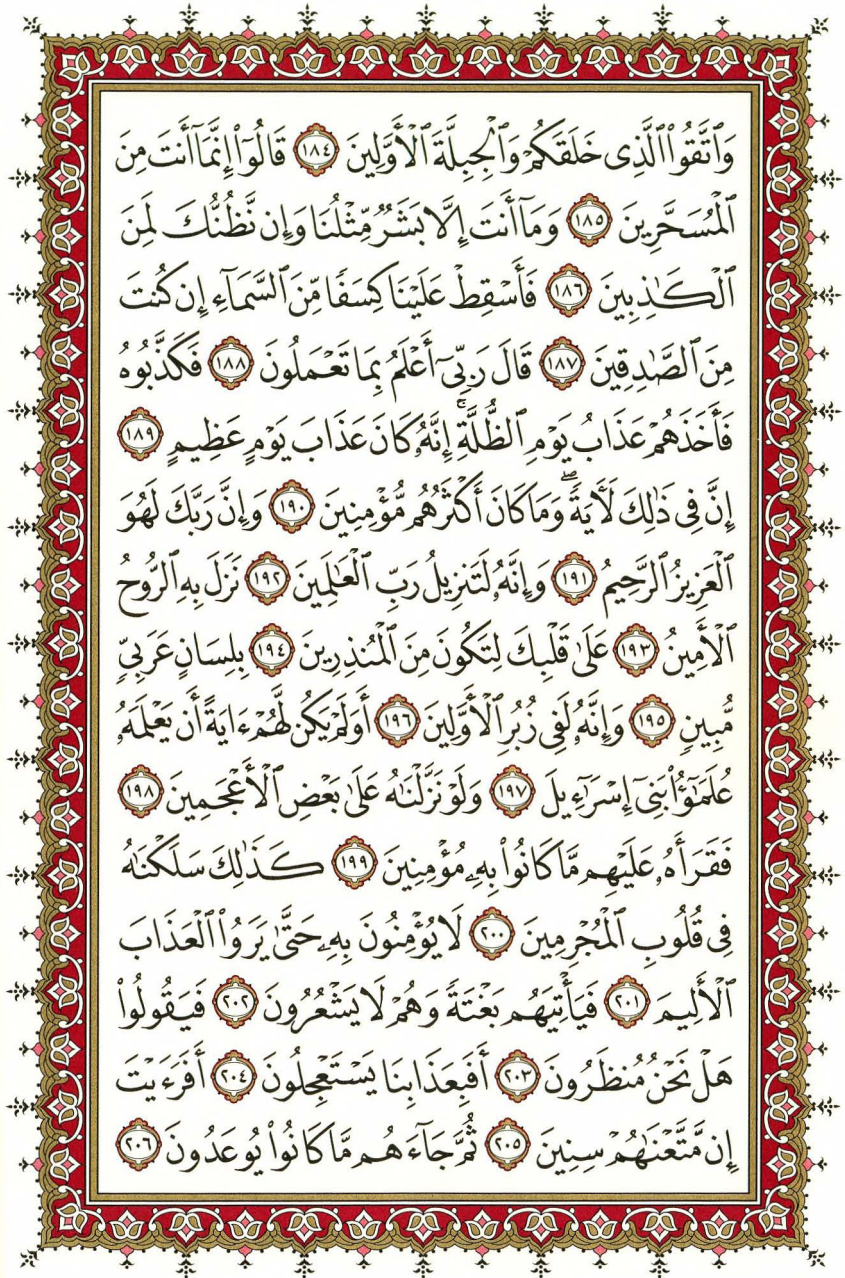 وَٱتَّقُوا۟ ٱلَّذِى خَلَقَكُمْ وَٱلْجِبِلَّةَ ٱلْأَوَّلِينَ ١٨٤ قَالُوٓا۟ إِنَّمَآ أَنتَ مِنَ
ٱلْمُسَحَّرِينَ ١٨٥ وَمَآ أَنتَ إِلَّا بَشَرٌ مِّثْلُنَا وَإِن نَّظُنُّكَ لَمِنَ
ٱلْكَـٰذِبِينَ ١٨٦ فَأَسْقِطْ عَلَيْنَا كِسَفًا مِّنَ ٱلسَّمَآءِ إِن كُنتَ
مِنَ ٱلصَّـٰدِقِينَ ١٨٧ قَالَ رَبِّىٓ أَعْلَمُ بِمَا تَعْمَلُونَ ١٨٨ فَكَذَّبُوهُ
فَأَخَذَهُمْ عَذَابُ يَوْمِ ٱلظُّلَّةِ ۚ إِنَّهُۥ كَانَ عَذَابَ يَوْمٍ عَظِيمٍ ١٨٩
إِنَّ فِى ذَٰلِكَ لَـَٔايَةً ۖ وَمَا كَانَ أَكْثَرُهُم مُّؤْمِنِينَ ١٩٠ وَإِنَّ رَبَّكَ لَهُوَ
ٱلْعَزِيزُ ٱلرَّحِيمُ ١٩١ وَإِنَّهُۥ لَتَنزِيلُ رَبِّ ٱلْعَـٰلَمِينَ ١٩٢ نَزَلَ بِهِ ٱلرُّوحُ
ٱلْأَمِينُ ١٩٣ عَلَىٰ قَلْبِكَ لِتَكُونَ مِنَ ٱلْمُنذِرِينَ ١٩٤ بِلِسَانٍ عَرَبِىٍّ
مُّبِينٍ ١٩٥ وَإِنَّهُۥ لَفِى زُبُرِ ٱلْأَوَّلِينَ ١٩٦ أَوَلَمْ يَكُن لَّهُمْ ءَايَةً أَن يَعْلَمَهُۥ
عُلَمَـٰٓؤُا۟ بَنِىٓ إِسْرَٰٓءِيلَ ١٩٧ وَلَوْ نَزَّلْنَـٰهُ عَلَىٰ بَعْضِ ٱلْأَعْجَمِينَ ١٩٨
فَقَرَأَهُۥ عَلَيْهِم مَّا كَانُوا۟ بِهِۦ مُؤْمِنِينَ ١٩٩ كَذَٰلِكَ سَلَكْنَـٰهُ
فِى قُلُوبِ ٱلْمُجْرِمِينَ ٢٠٠ لَا يُؤْمِنُونَ بِهِۦ حَتَّىٰ يَرَوُا۟ ٱلْعَذَابَ
ٱلْأَلِيمَ ٢٠١ فَيَأْتِيَهُم بَغْتَةً وَهُمْ لَا يَشْعُرُونَ ٢٠٢ فَيَقُولُوا۟
هَلْ نَحْنُ مُنظَرُونَ ٢٠٣ أَفَبِعَذَابِنَا يَسْتَعْجِلُونَ ٢٠٤ أَفَرَءَيْتَ
إِن مَّتَّعْنَـٰهُمْ سِنِينَ ٢٠٥ ثُمَّ جَآءَهُم مَّا كَانُوا۟ يُوعَدُونَ ٢٠٦